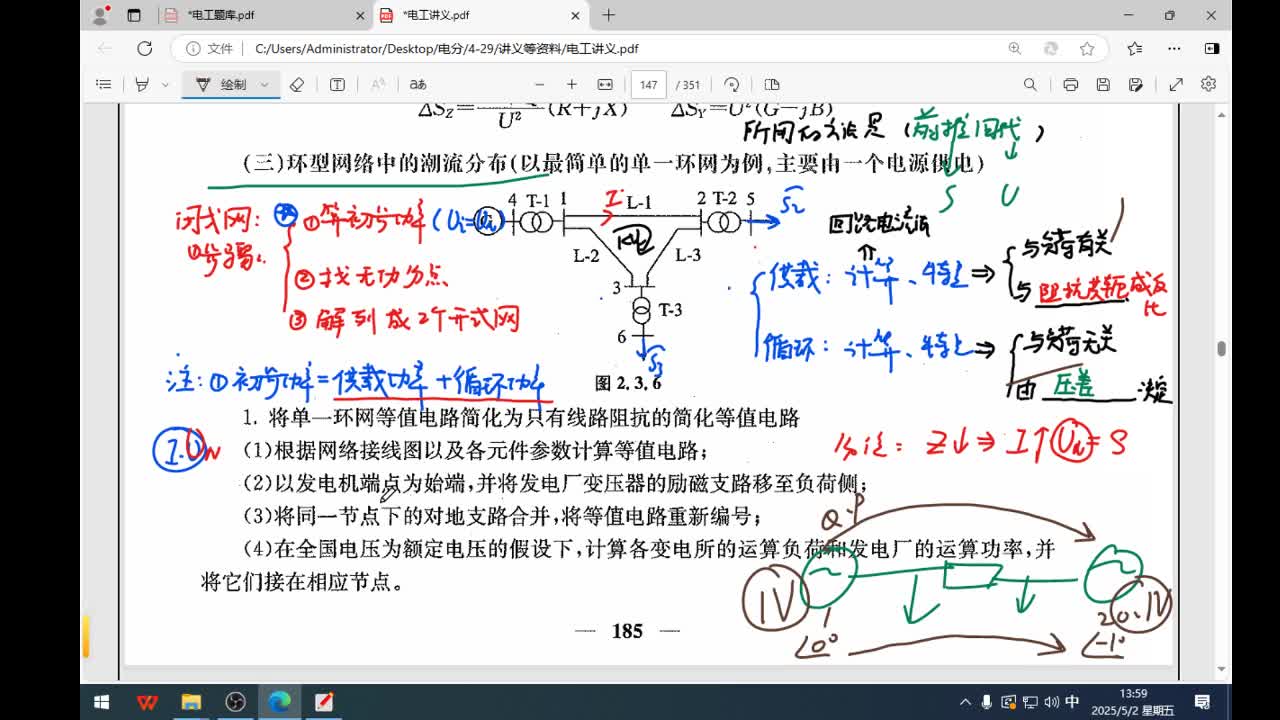 *电工题库.pdf
*电工讲义.pdf
文件 C:/Users/Administrator/Desktop/电分/4-29/讲义等资料/电工讲义.pdf
绘制 147 / 351
ΔS_Z= U² (R+jX) ΔS_Y=U²(G-jB)
所用的方法是（前推回代）
(三)环型网络中的潮流分布(以最简单的单一环网为例,主要由一个电源供电)
S U
闭式网:
步骤:
①算初步功率(Ui=Un)
②找无功分点
③解列成2个开式网
4 T-1 1 L-1 2 T-2 5
I
S2
L-2 L-3
3 T-3
6
S3
图 2.3.6
回流电流源
供载: 计算、特征 ⇒ 与负荷有关
与阻抗共轭成反比
循环: 计算、特征 ⇒ 与负荷无关
由 压差 决定
注:①初步功率=供载功率+循环功率
1. 将单一环网等值电路简化为只有线路阻抗的简化等值电路
I·Un
(1)根据网络接线图以及各元件参数计算等值电路;
Z↓⇒I↑Un=S
(2)以发电机端点为始端,并将发电厂变压器的励磁支路移至负荷侧;
(3)将同一节点下的对地支路合并,将等值电路重新编号;
(4)在全国电压为额定电压的假设下,计算各变电所的运算负荷和发电厂的运算功率,并
将它们接在相应节点。
Q.P
1V
∠0°
20.1V
∠-1°
— 185 —
中
13:59
2025/5/2 星期五